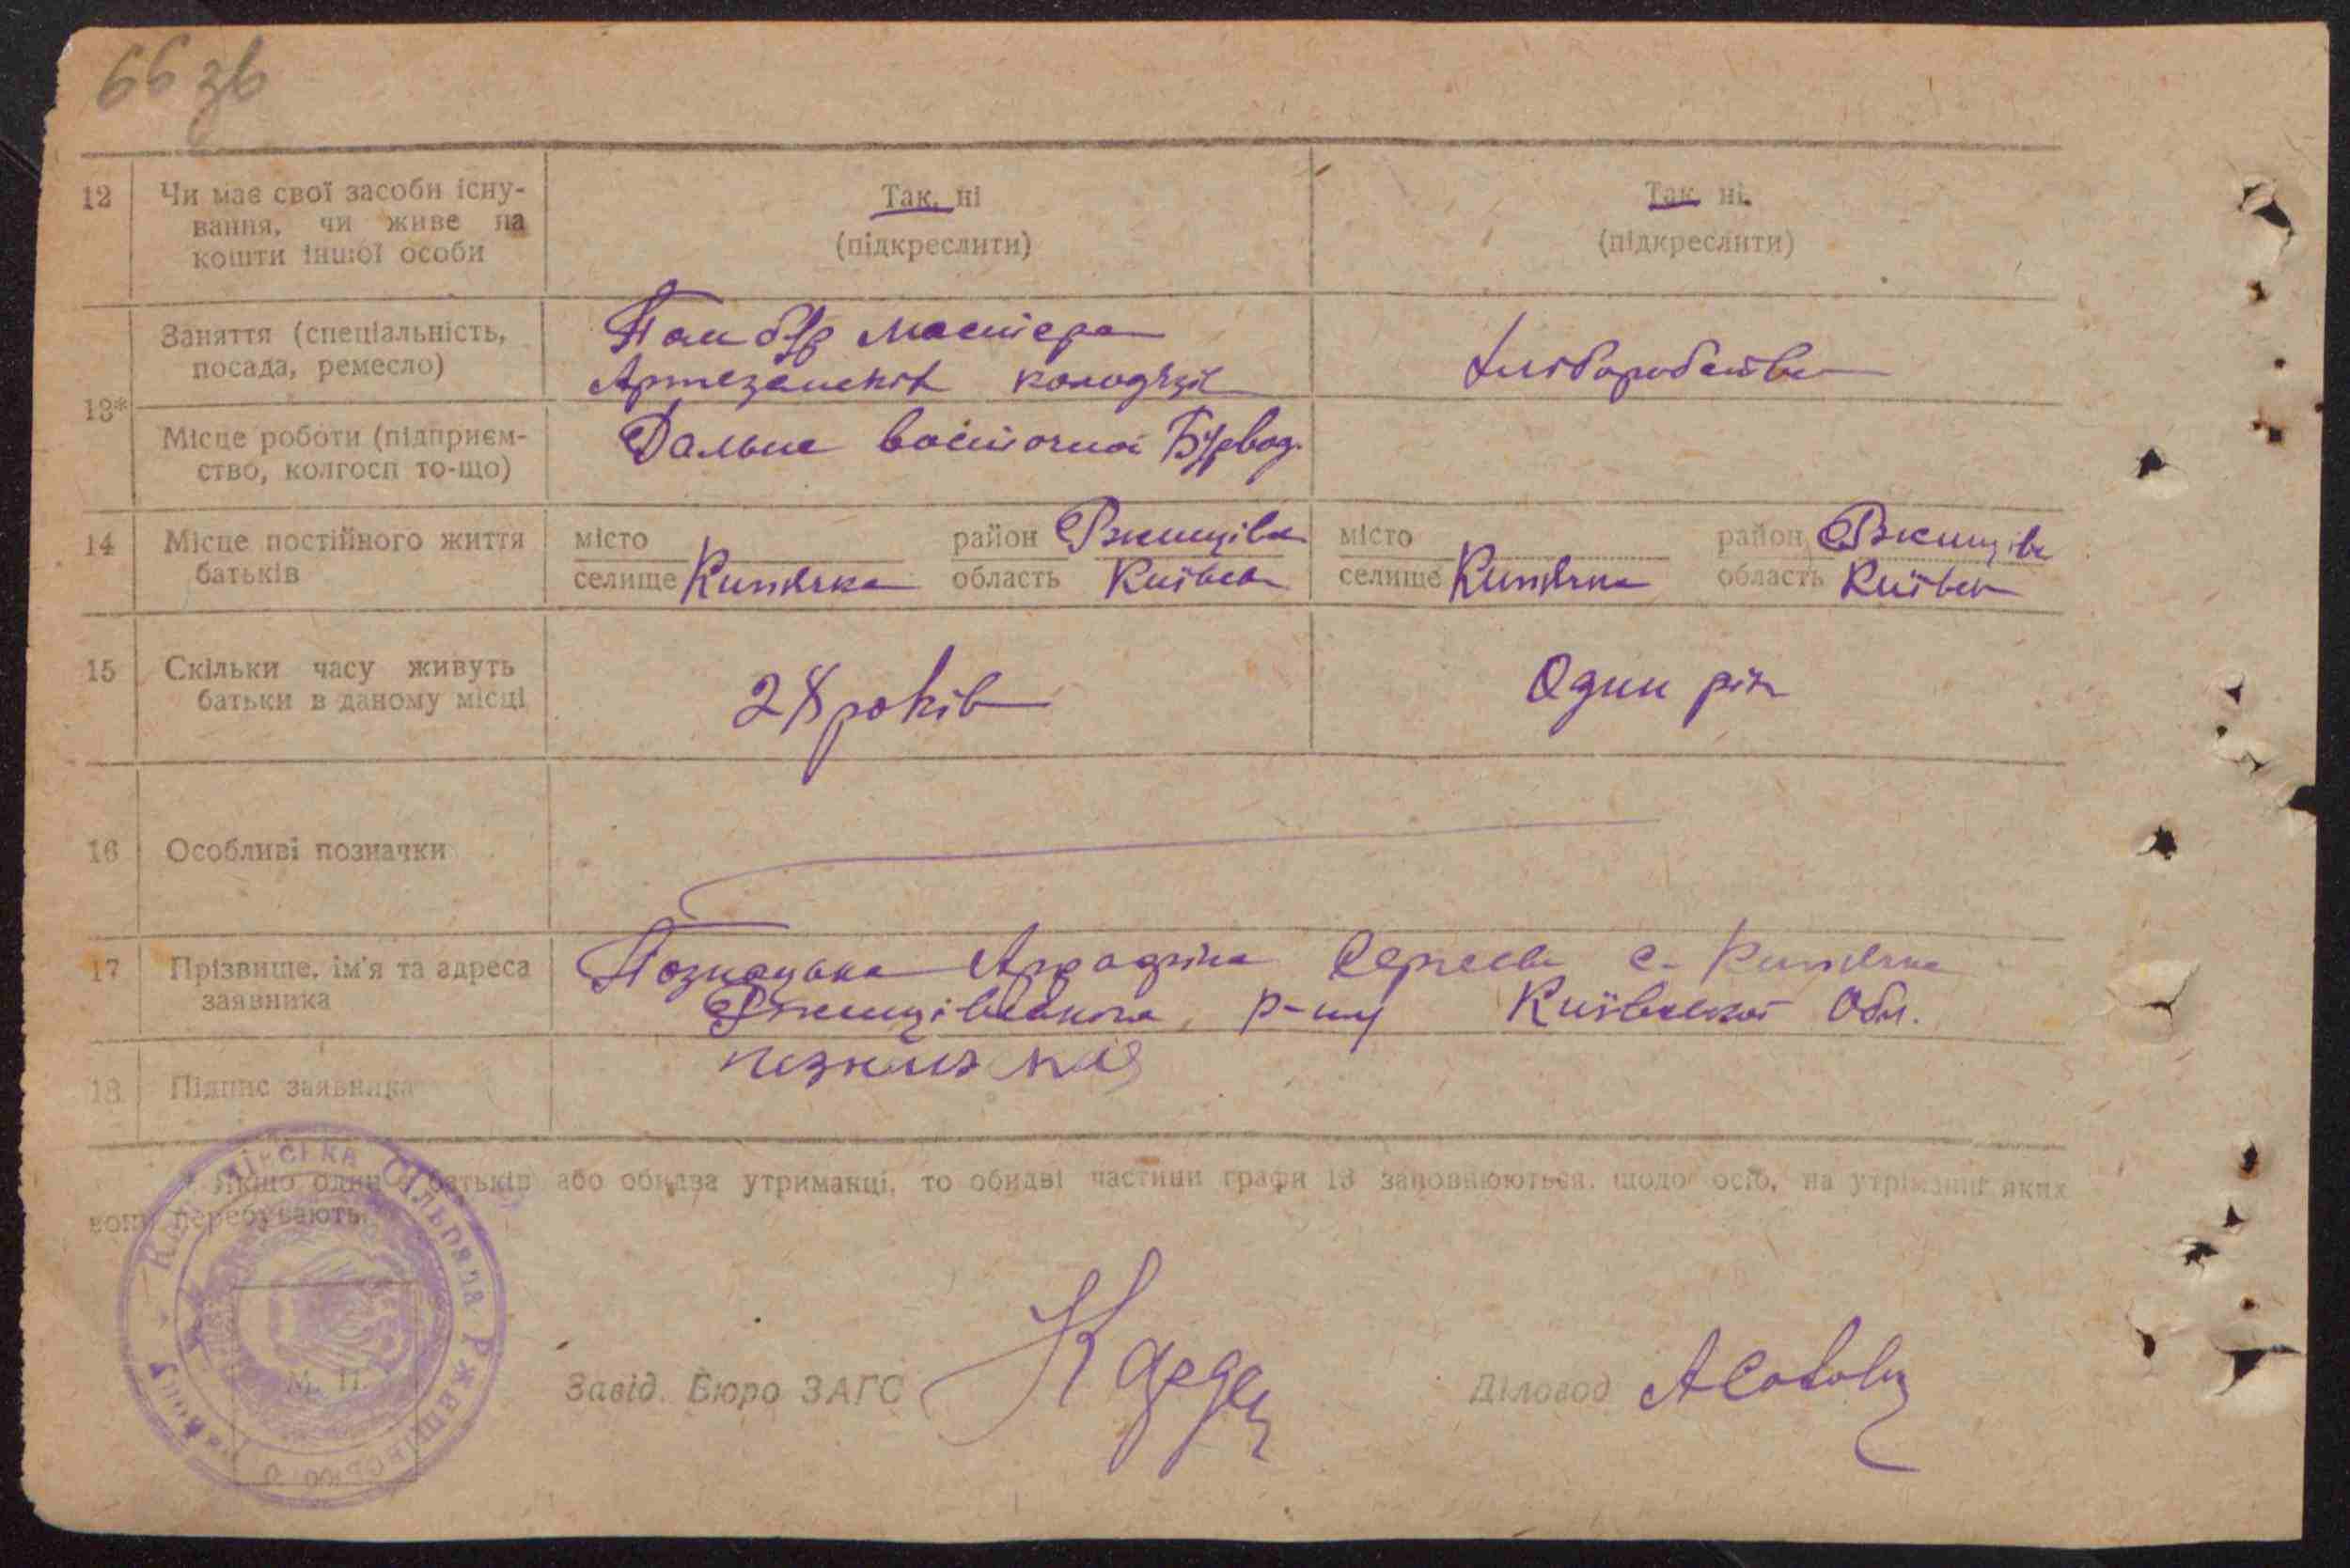 66 зв
12 Чи має свої засоби існу-
вання, чи живе на
кошти іншої особи
Так, ні
(підкреслити)
Так, ні.
(підкреслити)
13*
Заняття (спеціальність,
посада, ремесло)
Пом бур мастера
колодязів
Хліборобство
Місце роботи (підприєм-
ство, колгосп то-що)
Дальне восточної Бурвод.
14 Місце постійного життя
батьків
місто район Ржищівс
селище Кипячка область Київськ
місто район Ржищівс
селище Кипячка область Київськ
15 Скільки часу живуть
батьки в даному місці
28 років
Один рік
16 Особливі позначки
17 Прізвище, ім'я та адреса
заявника
с. Кипячка
Ржищівського р-ну Київської Обл.
18 Підпис заявника
Якщо один з батьків або обидва утриманці, то обидві частини графи 13 заповнюються щодо осіб, на утриманні яких
вони перебувають.
Сільрада
району
М. П.
Завід. Бюро ЗАГС
Діловод